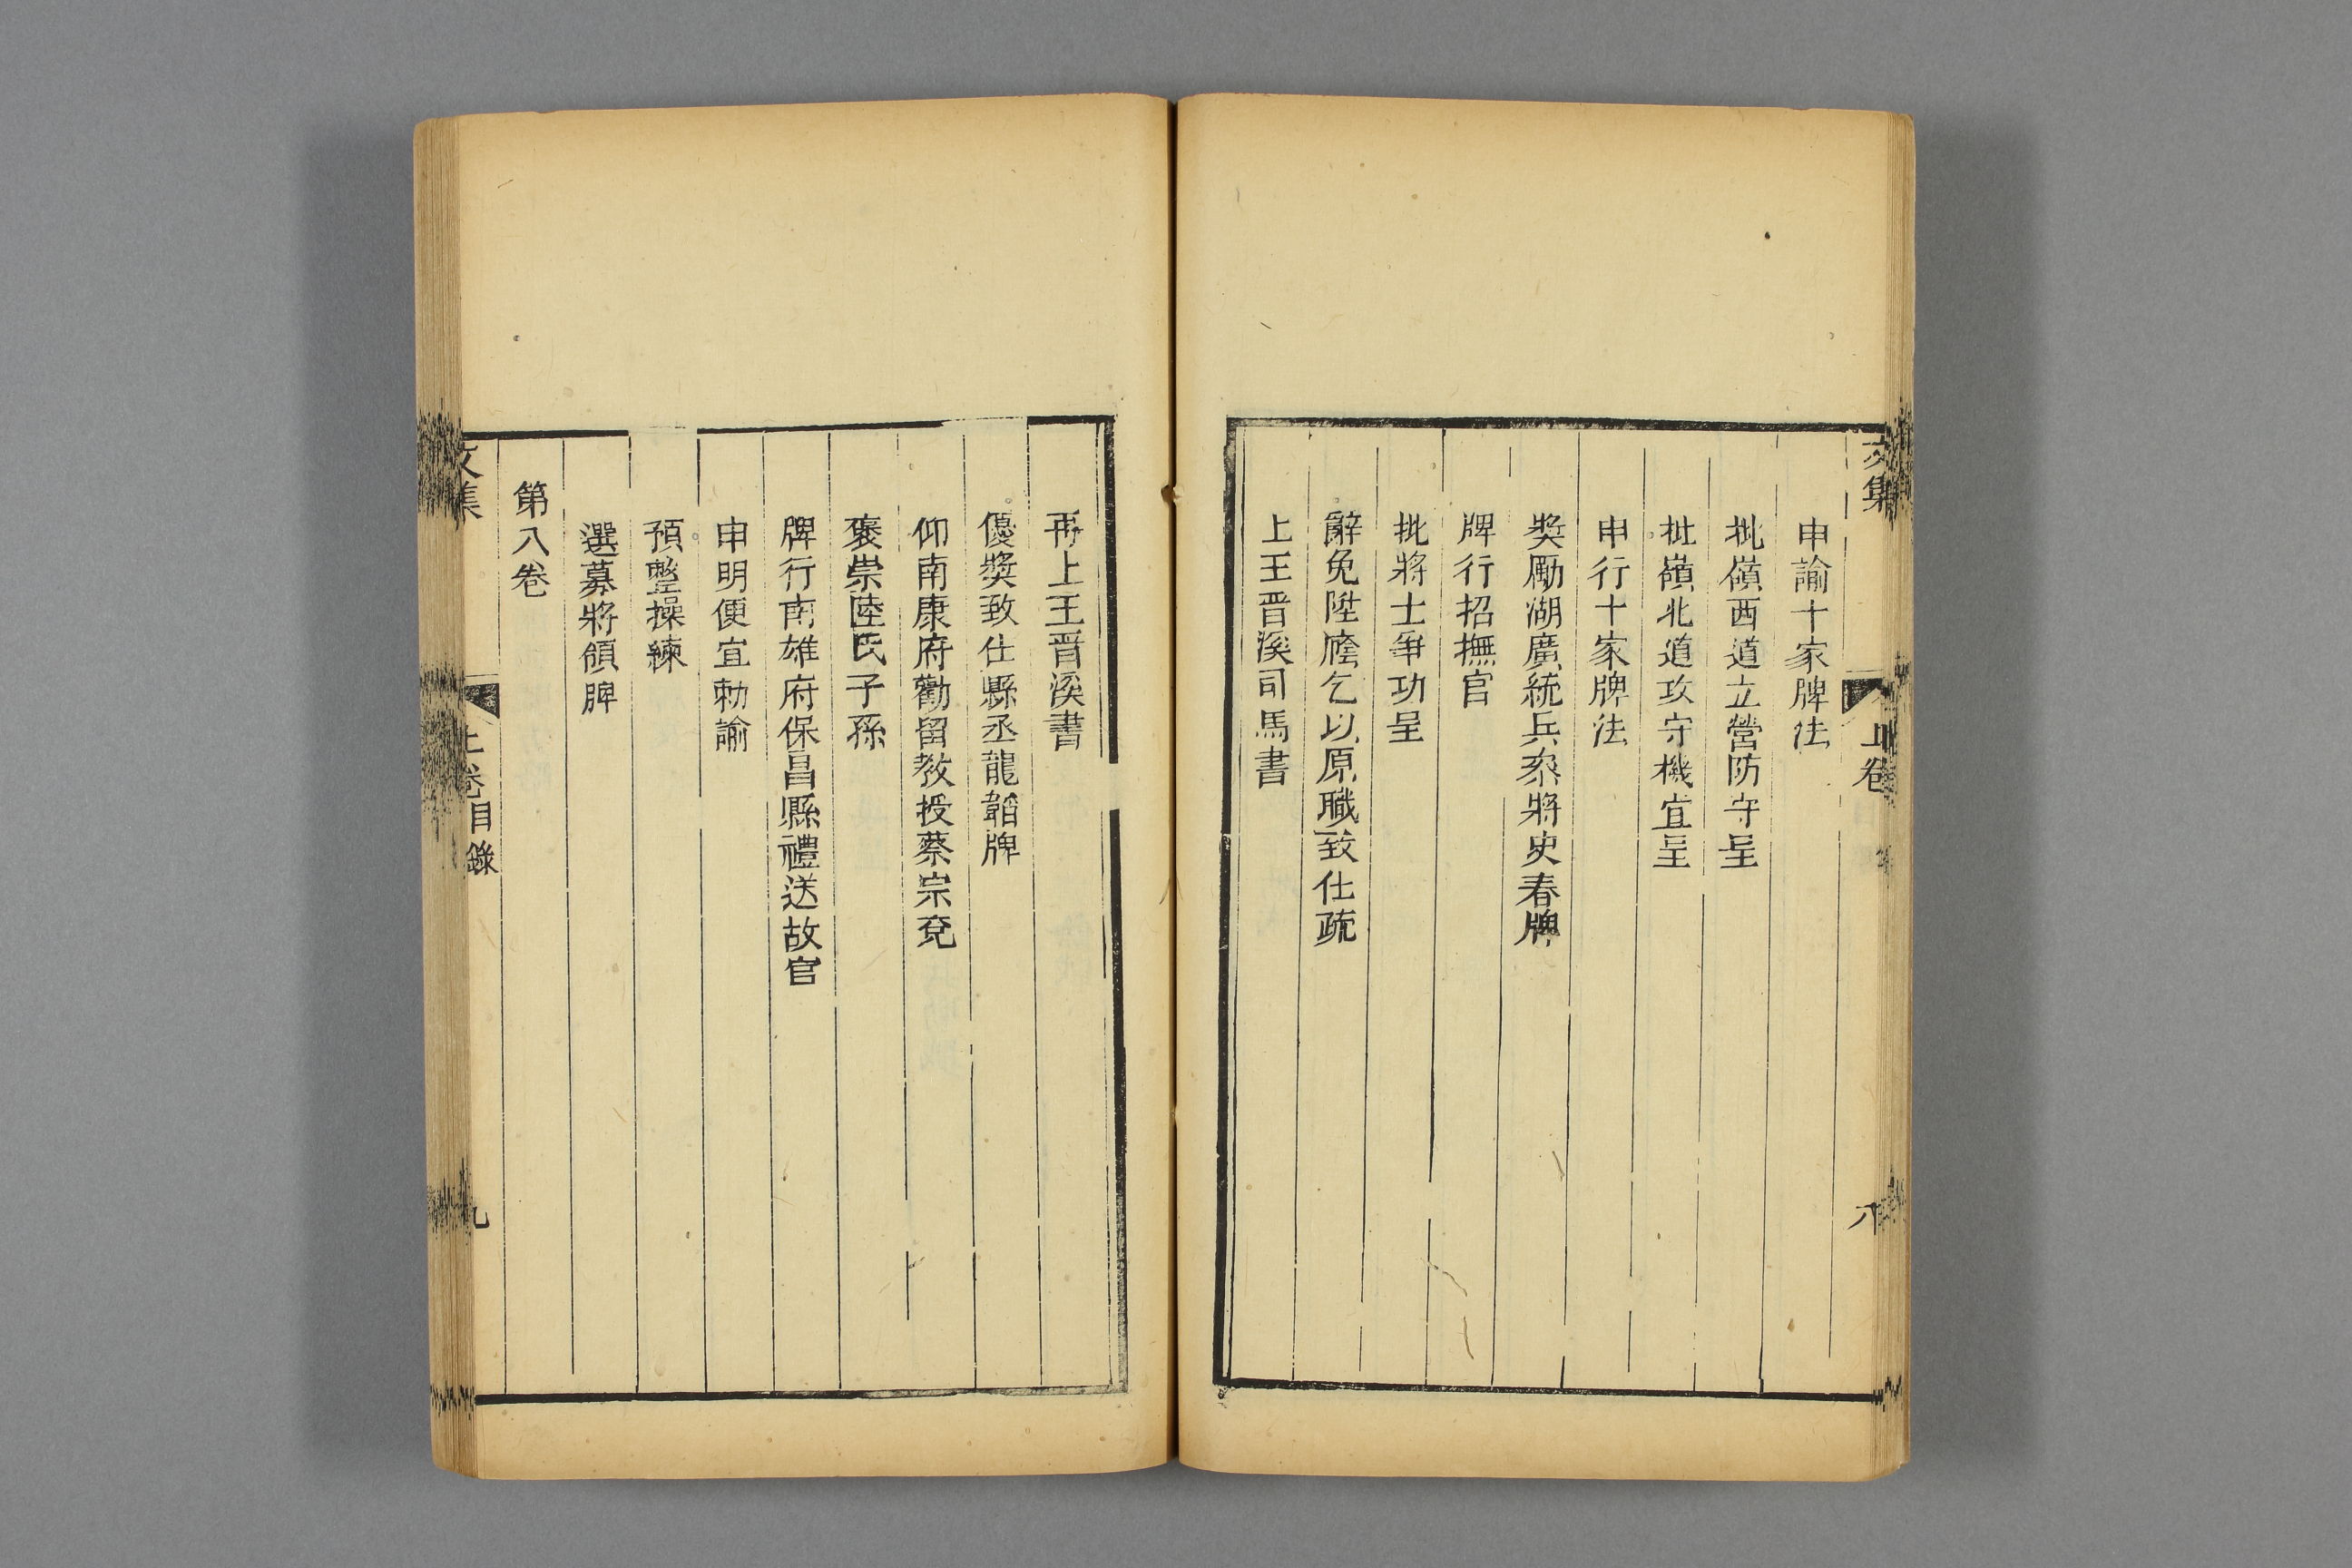 文集
上卷
八
申諭十家牌法
批嶺西道立營防守呈
批嶺北道攻守機宜呈
申行十家牌法
奬勵湖廣統兵叅將史春牌
牌行招撫官
批將士爭功呈
辭免陞廕乞以原職致仕疏
上王晋溪司馬書
再上王晋溪書
優奬致仕縣丞龍韜牌
仰南康府勸留教授蔡宗兗
褒崇陸氏子孫
牌行南雄府保昌縣禮送故官
申明便宜勑諭
預整操練
選募將領牌
第八卷
文集
上卷目錄
九